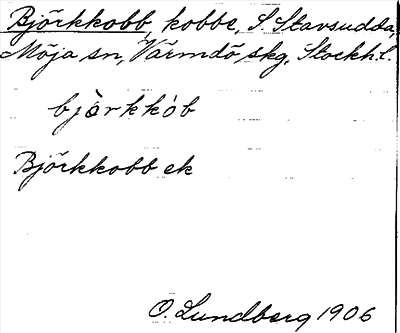 Björkkobb, kobbe, S. Stavsudda,
Möja sn, Värmdö skg, Stockh. l.
bjòrkkòb
Björkkobb ek
O. Lundberg 1906